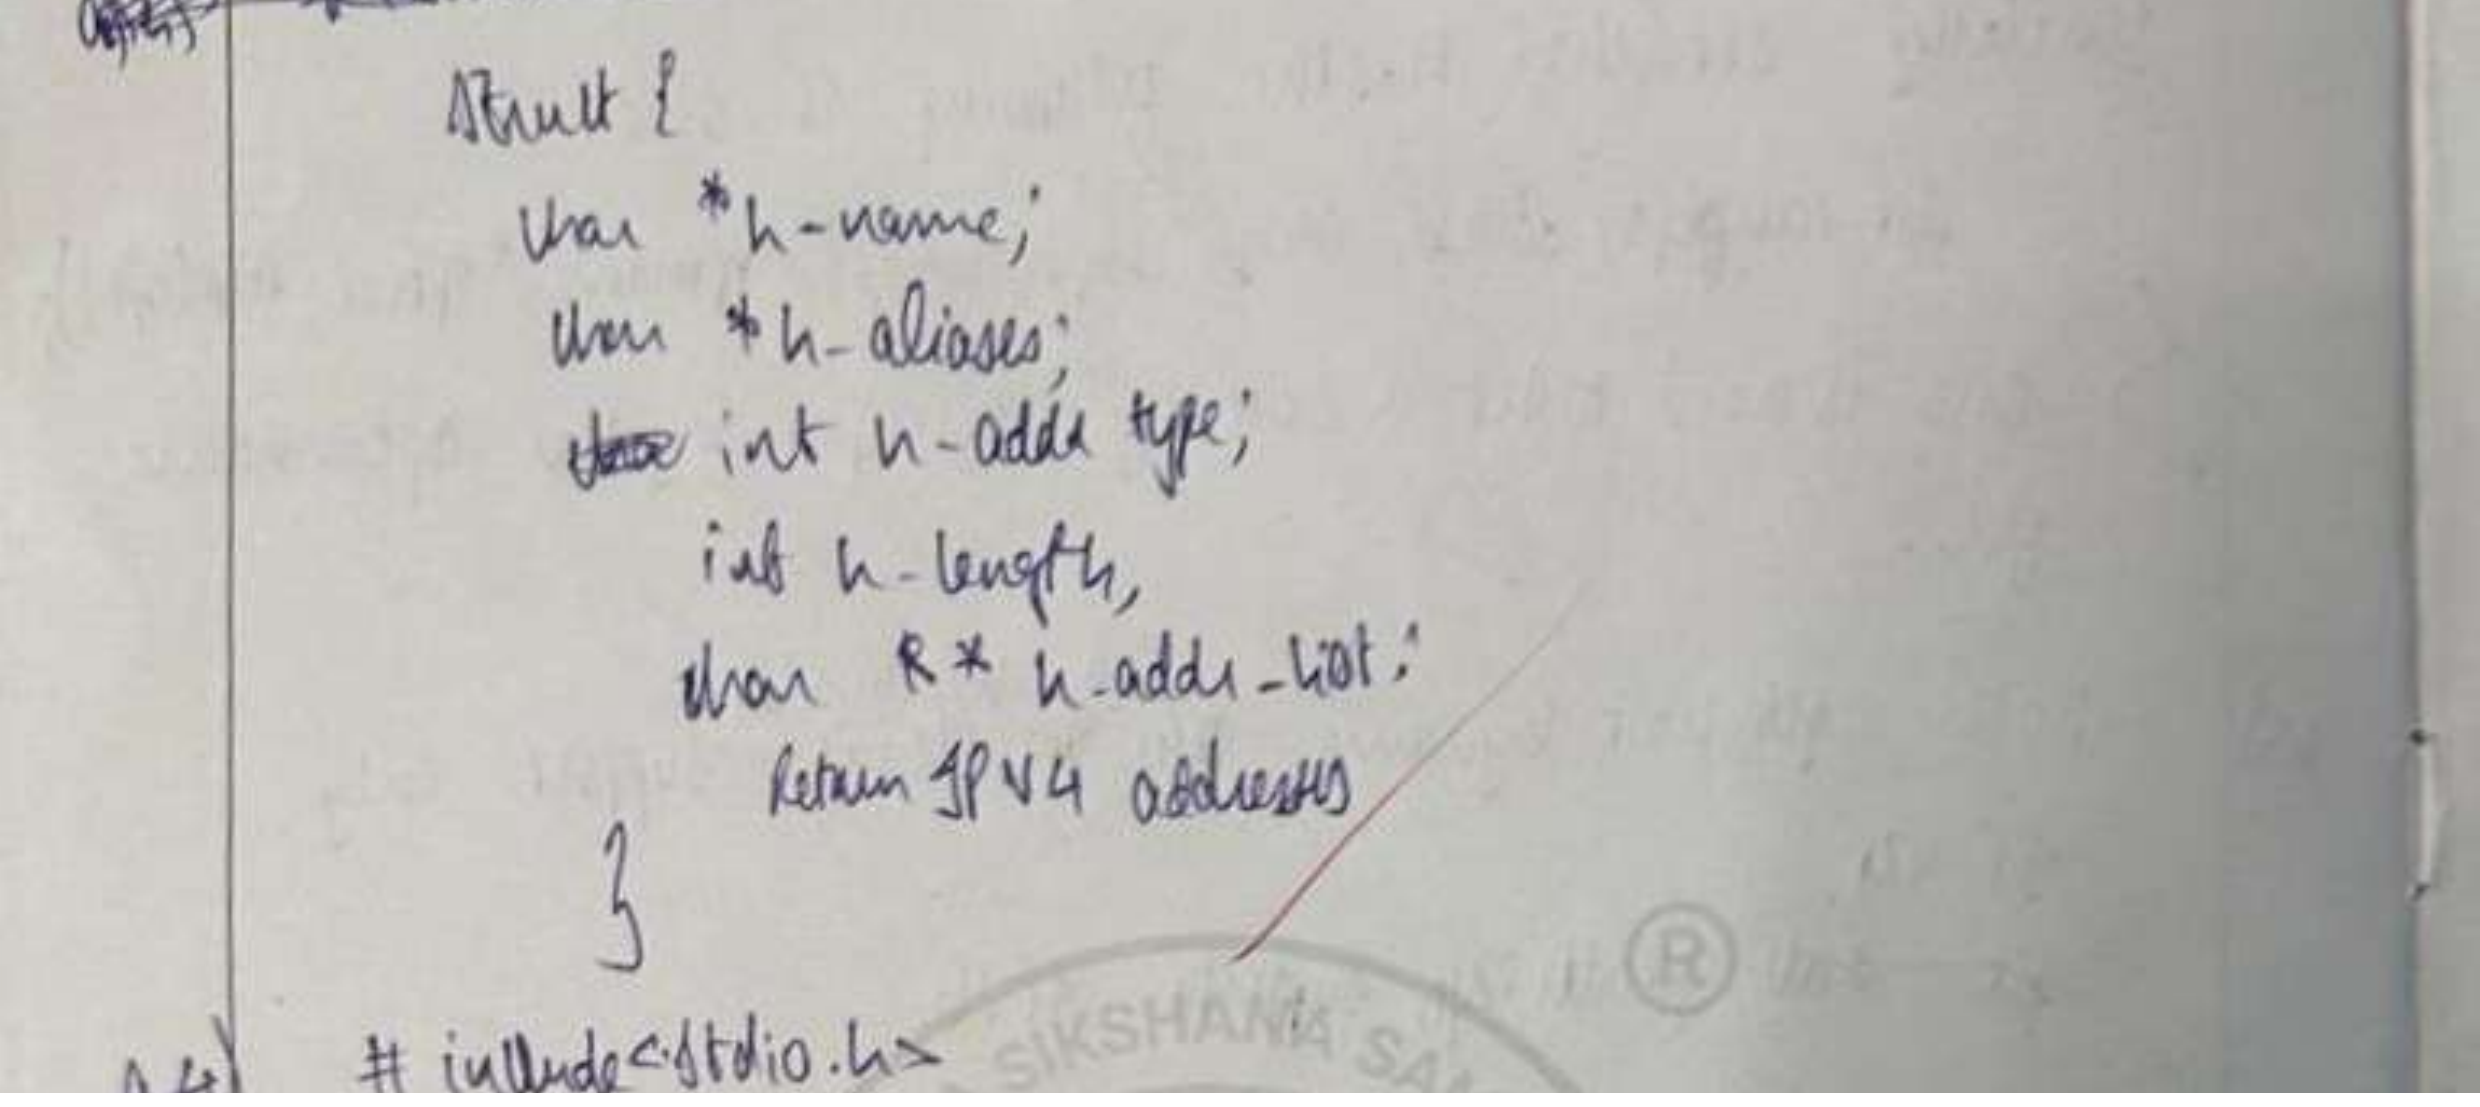 struct {
char *h-name;
char *h-aliases;
int h-addr type;
int h-length,
char ** h-addr-list;
Return IPV4 addresses
}
# include<stdio.h>
SIKSHANA SA
®